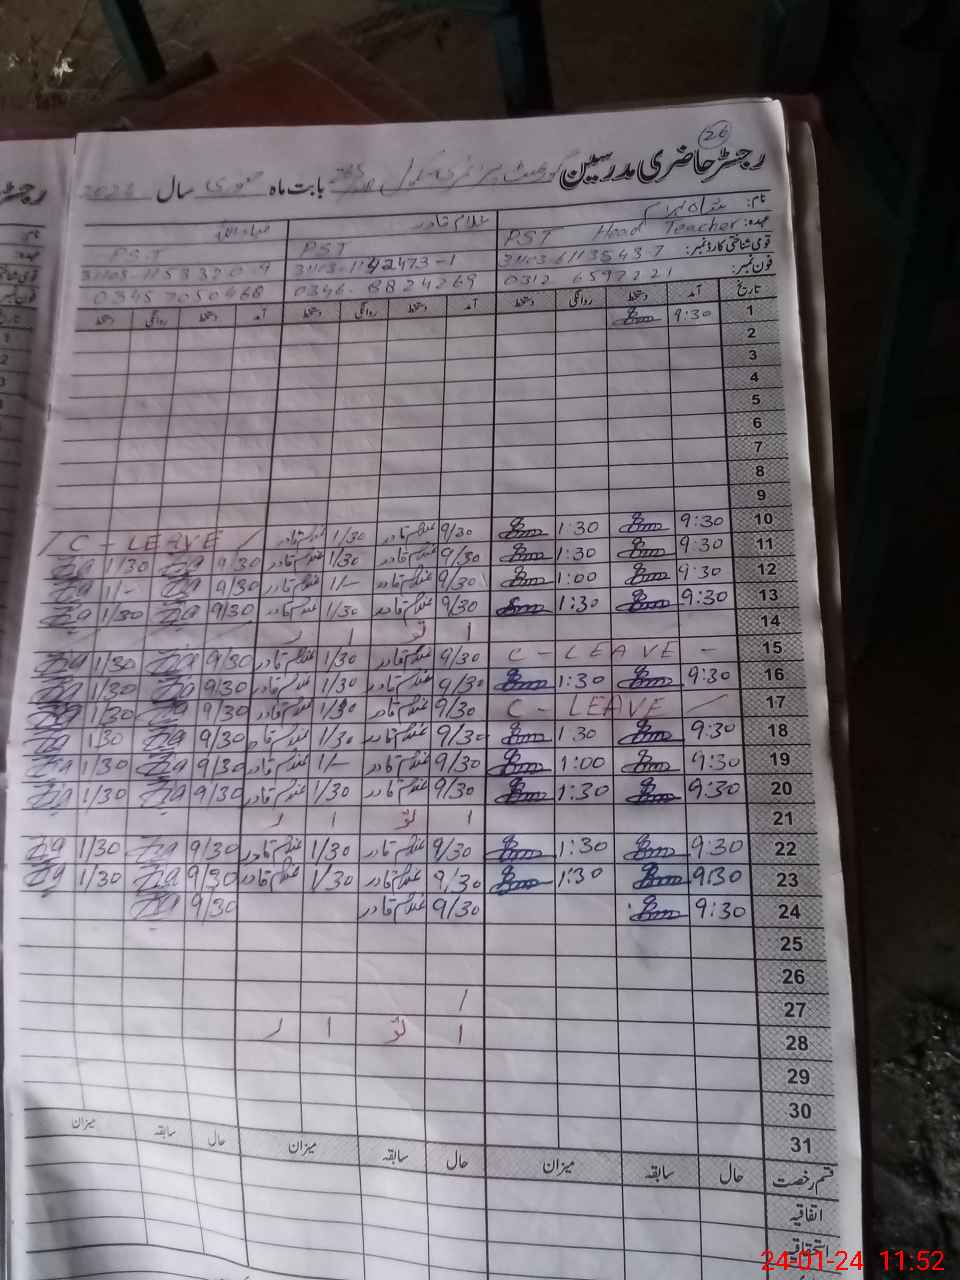 26
رجسٹر حاضری مدرسین گورنمنٹ بابت ماہ جنوری سال
نام: غلام قادر
عہدہ: PST Head Teacher PST PST
قومی شناختی کارڈ نمبر: 31103-6113543-7 31103-1142473-1 31103-1153320-9
فون نمبر: 0312 6592221 0346-8824269 0345 7050468
تاریخ آمد دستخط روانگی دستخط آمد دستخط روانگی دستخط آمد دستخط روانگی دستخط
1 9:30
2
3
4
5
6
7
8
9
10 9:30 1:30 9/30 غلام قادر 1/30 غلام قادر C - LEAVE
11 9:30 1:30 9/30 غلام قادر 1/30 غلام قادر 9/30 1/30
12 9:30 1:00 9/30 غلام قادر 1/- غلام قادر 9/30 1/-
13 9:30 1:30 9/30 غلام قادر 1/30 غلام قادر 9/30 1/30
14 ا تو ا ر
15 C - LEAVE - 9/30 غلام قادر 1/30 غلام قادر 9/30 1/30
16 9:30 1:30 9/30 غلام قادر 1/30 غلام قادر 9/30 1/30
17 C - LEAVE 9/30 غلام قادر 1/30 غلام قادر 9/30 1/30
18 9:30 1 30 9/30 غلام قادر 1/30 غلام قادر 9/30 130
19 9:30 1:00 9/30 غلام قادر 1/- غلام قادر 9/30 1/30
20 9:30 1:30 9/30 غلام قادر 1/30 غلام قادر 9/30 1/30
21 ا تو ا ر
22 9:30 1:30 9/30 غلام قادر 1/30 غلام قادر 9/30 1/30
23 9:30 1:30 9/30 غلام قادر 1/30 غلام قادر 9/30 1/30
24 9:30 9/30 غلام قادر 9/30
25
26
27
28 ا تو ا ر
29
30
31
قسم رخصت حال سابقہ میزان حال سابقہ میزان حال سابقہ میزان
اتفاقیہ
استحقاقیہ
24-01-24 11:52